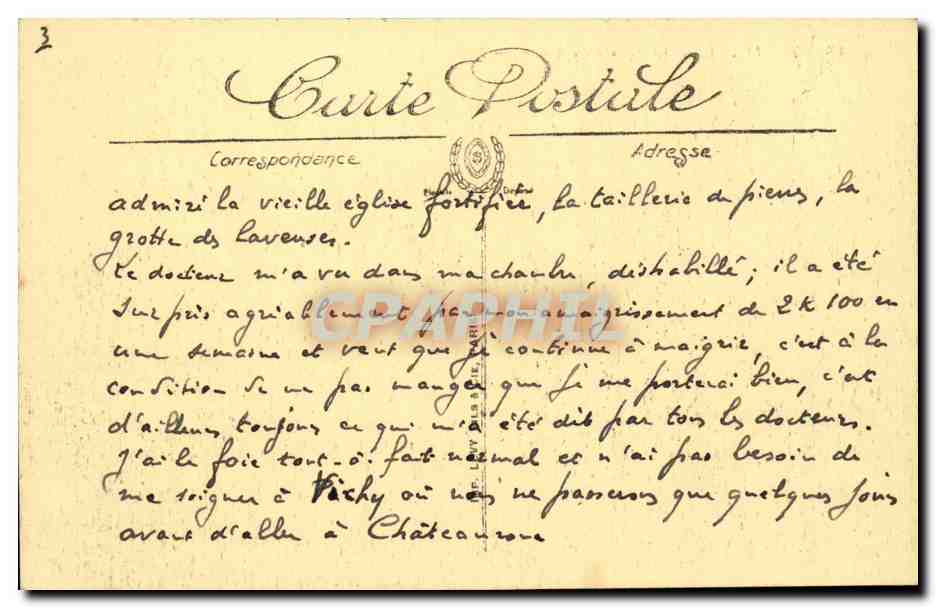 3
Carte Postale
Correspondance
Adresse
admiré la vieille église fortifiée, la taillerie de pierres, la
grotte des laveuses.
Le docteur m'a vu dans ma chambre, déshabillé; il a été
surpris agréablement par mon amaigrissement de 2 K 100 en
une semaine et veut que je continue à maigrir, c'est à la
condition de ne pas manger que je me porterai bien, c'est
d'ailleurs toujours ce qui m'a été dit par tous les docteurs.
J'ai le foie tout-à-fait normal et n'ai pas besoin de
me soigner à Vichy où nous ne passerons que quelques jours
avant d'aller à Châteauroux
LEVY FILS & CIE, PARIS
CPAPHIL